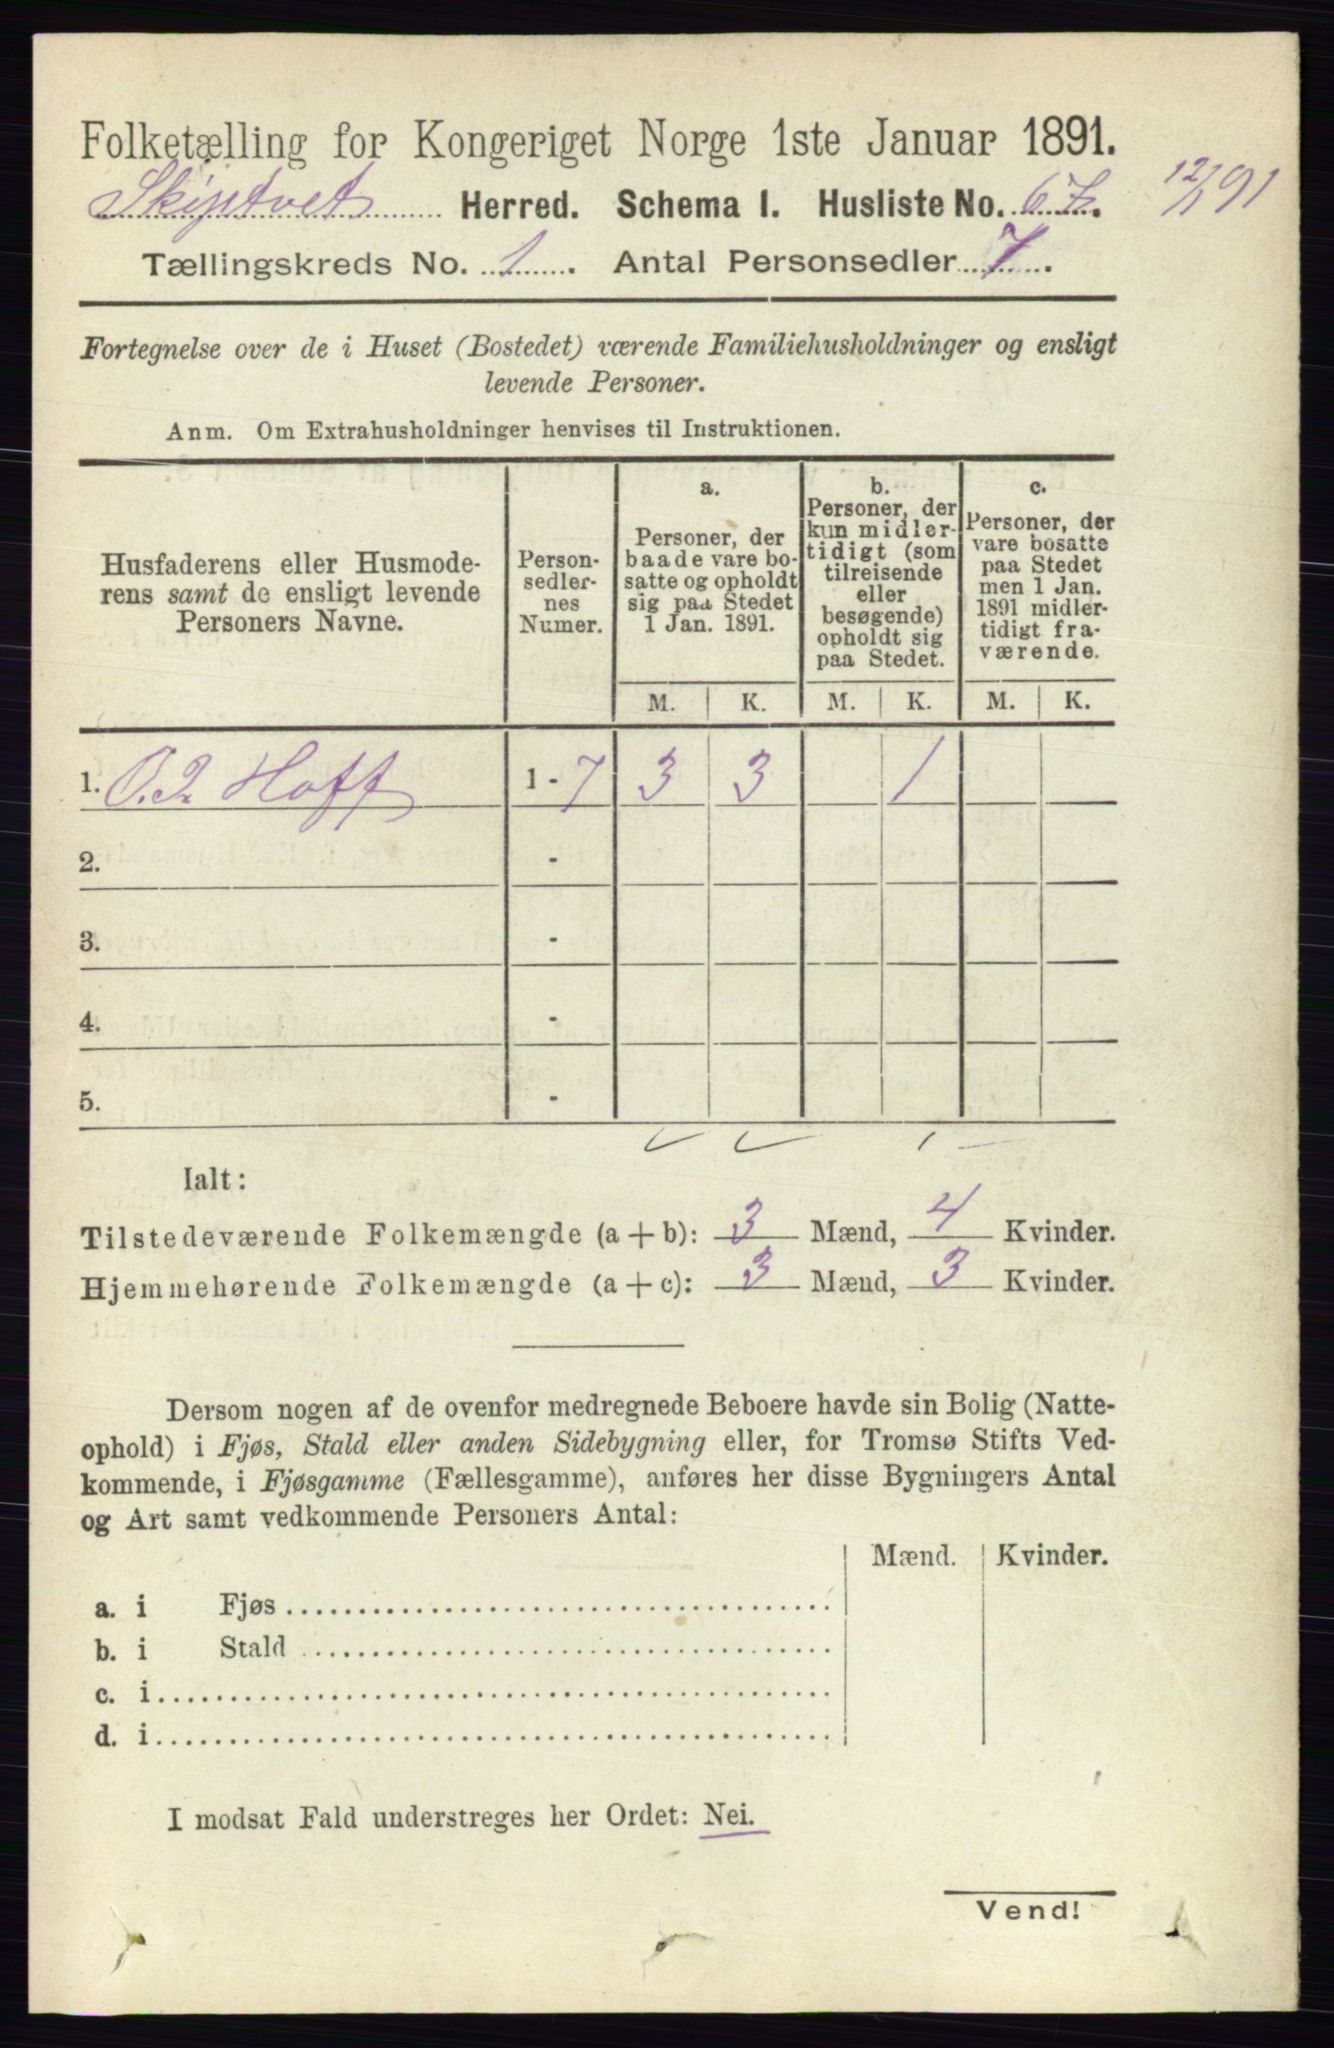 Folketælling for Kongeriget Norge 1ste Januar 1891.
Skiptvet Herred. Schema I. Husliste No. 67. 12/1 91
Tællingskreds No. 1. Antal Personsedler 7.
Fortegnelse over de i Huset (Bostedet) værende Familiehusholdninger og ensligt
levende Personer.
Anm. Om Extrahusholdninger henvises til Instruktionen.
Husfaderens eller Husmode-
rens samt de ensligt levende
Personers Navne.
Person-
sedler-
nes
Numer.
a.
Personer, der
baade vare bo-
satte og opholdt
sig paa Stedet
1 Jan. 1891.
b.
Personer, der
kun midler-
tidigt (som
tilreisende
eller
besøgende)
opholdt sig
paa Stedet.
c.
Personer, der
vare bosatte
paa Stedet
men 1 Jan.
1891 midler-
tidigt fra-
værende.
M. K. M. K. M. K.
1. Hoff 1 - 7 3 3 1
2. -
3. -
4. -
5. -
Ialt:
Tilstedeværende Folkemængde (a + b): 3 Mænd, 4 Kvinder.
Hjemmehørende Folkemængde (a + c): 3 Mænd, 3 Kvinder.
Dersom nogen af de ovenfor medregnede Beboere havde sin Bolig (Natte-
ophold) i Fjøs, Stald eller anden Sidebygning eller, for Tromsø Stifts Ved-
kommende, i Fjøsgamme (Fællesgamme), anføres her disse Bygningers Antal
og Art samt vedkommende Personers Antal:
Mænd. Kvinder.
a. i Fjøs
b. i Stald
c. i
d. i
I modsat Fald understreges her Ordet: Nei.
Vend!